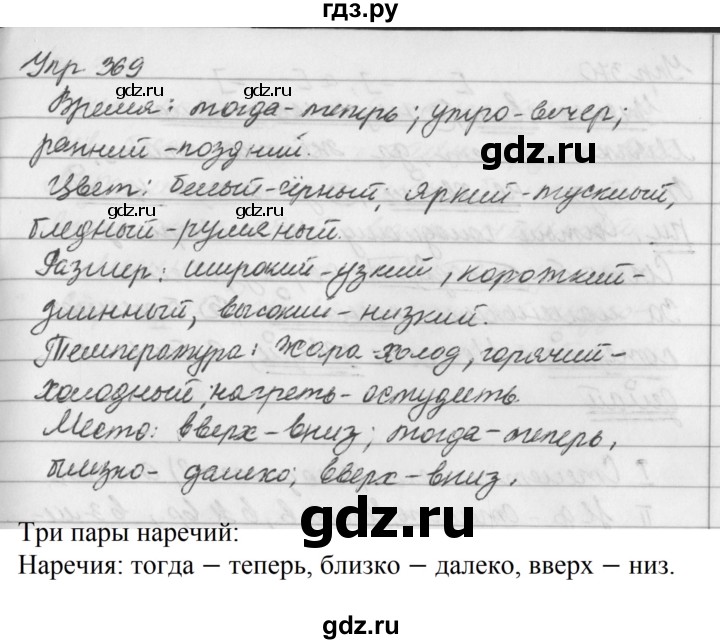 гдз.ру
Упр 369
Время: тогда-теперь; утро-вечер;
ранний-поздний.
Цвет: белый-чёрный, яркий-тусклый,
бледный-румяный.
Размер: широкий-узкий, короткий-
длинный, высокий-низкий.
Температура: жара-холод, горячий-
холодный, нагреть-остудить.
Место: вверх-вниз; тогда-теперь,
близко-далеко; вверх-вниз.
gdz.ru
gdz.ru
gdz.ru
gdz.ru
gdz.ru
gdz.ru
gdz.ru
gdz.ru
gdz.ru
Три пары наречий:
Наречия: тогда − теперь, близко − далеко, вверх − низ.
gdz.ru